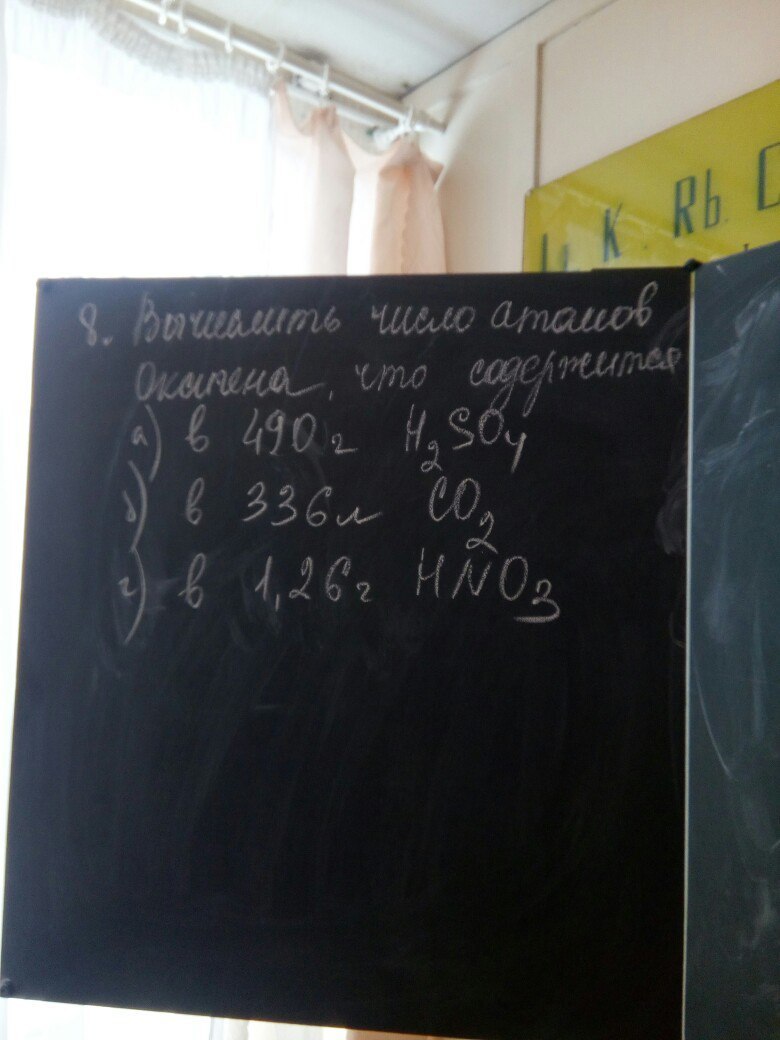 K. Rb.
8. Вычислить число атомов
Оксигена, что содержится
а) в 490 г H₂SO₄
б) в 336 л CO₂
г) в 1,26 г HNO₃